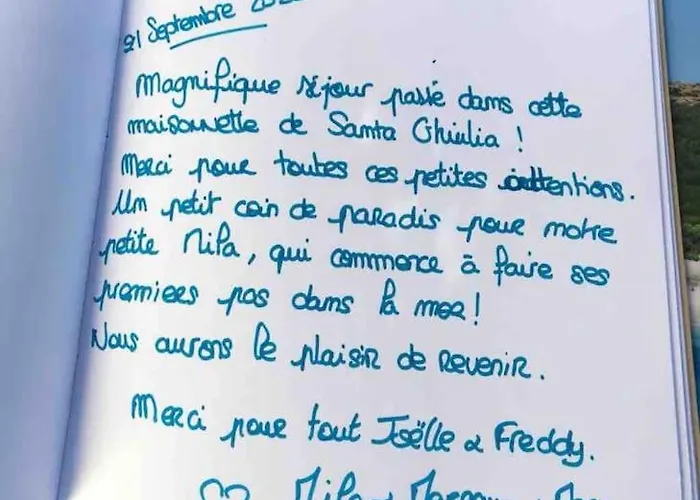 21 Septembre
Magnifique séjour passé dans cette
maisonnette de Santa Ghiulia !
Merci pour toutes ces petites attentions.
Un petit coin de paradis pour notre
petite Mila, qui commence à faire ses
premiers pas dans la mer !
Nous aurons le plaisir de revenir.
Merci pour tout Joëlle & Freddy.
♡ Mila